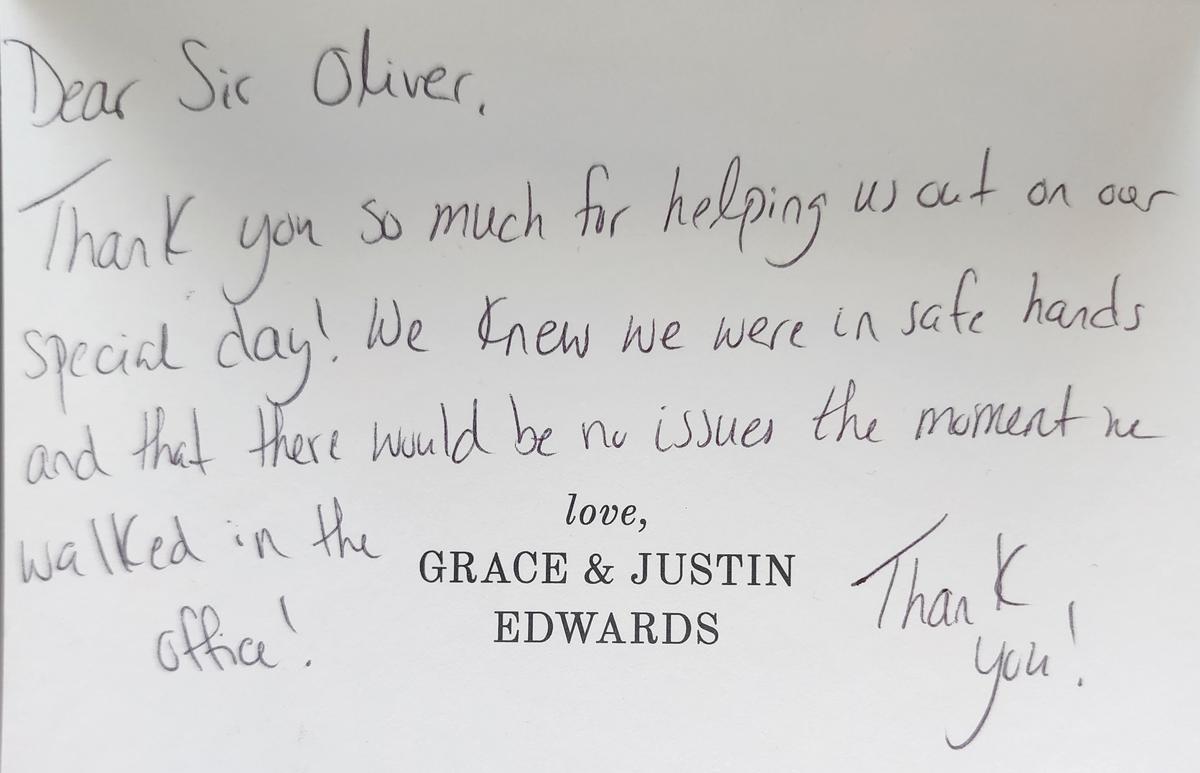 Dear Sir Oliver,
Thank you so much for helping us out on our
special day! We knew we were in safe hands
and that there would be no issues the moment we
walked in the
office!
love,
GRACE & JUSTIN
EDWARDS
Thank
you!